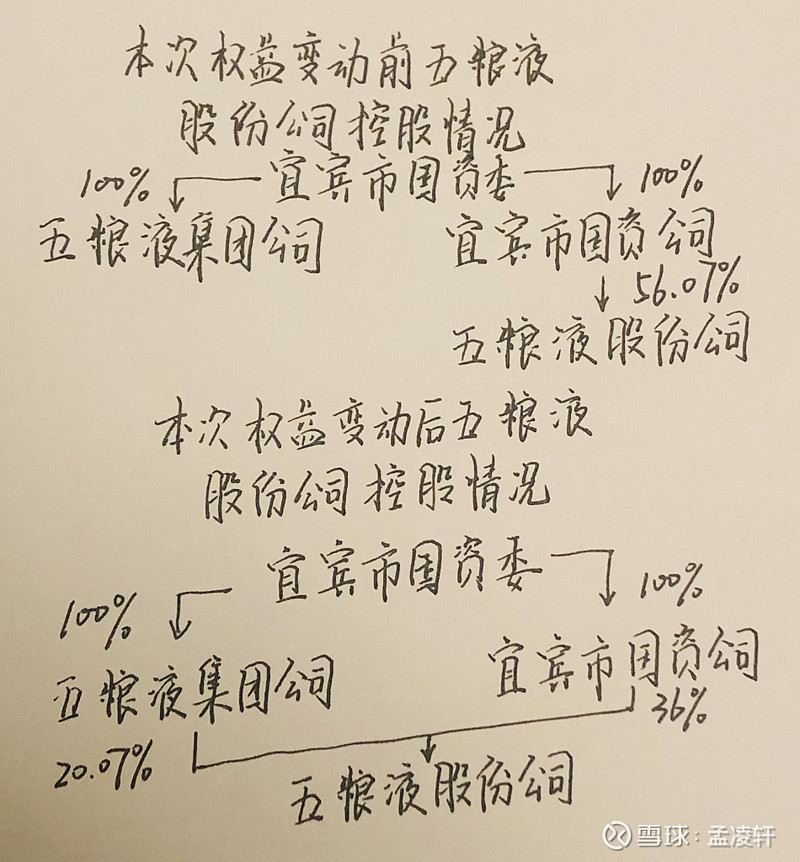 本次权益变动前五粮液
股份公司控股情况
100% 宜宾市国资委 100%
五粮液集团公司 宜宾市国资公司
56.07%
五粮液股份公司
本次权益变动后五粮液
股份公司控股情况
宜宾市国资委
100% 100%
五粮液集团公司 宜宾市国资公司
20.07% 36%
五粮液股份公司
雪球：孟凌轩